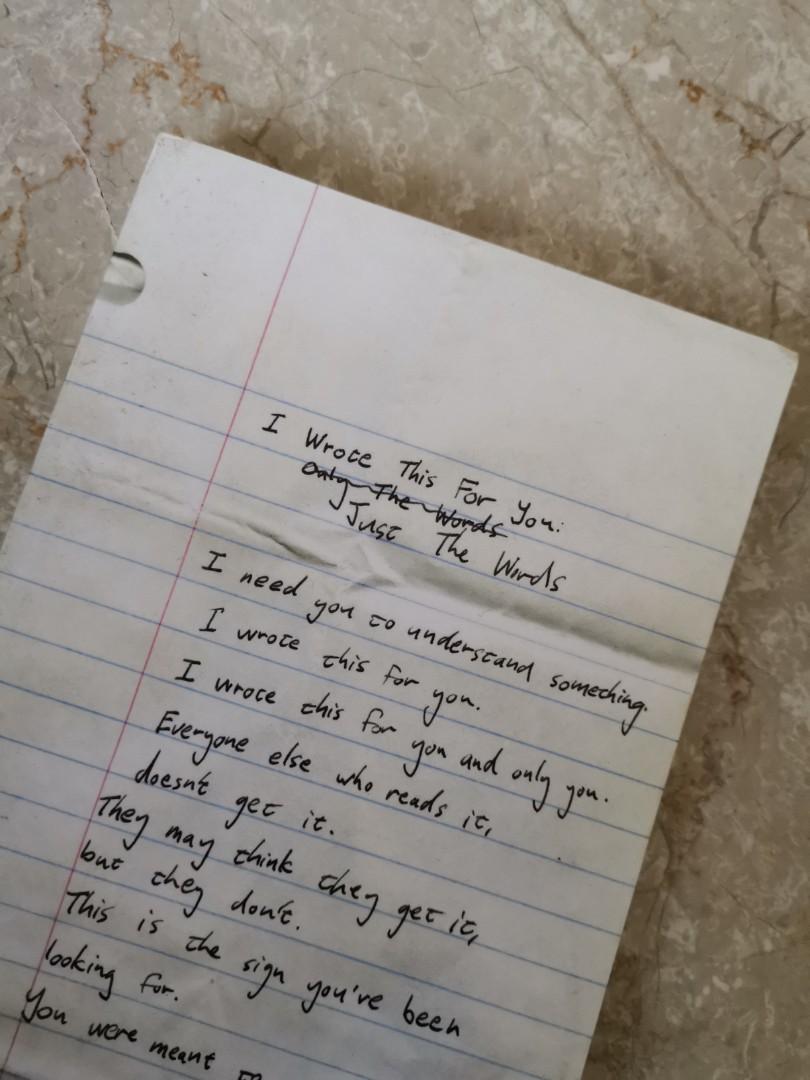 I Wrote This For You:
Only The Words
Just The Words
I need you to understand something.
I wrote this for you.
I wrote this for you and only you.
Everyone else who reads it,
doesn't get it.
They may think they get it,
but they don't.
This is the sign you've been
looking for.
You were meant